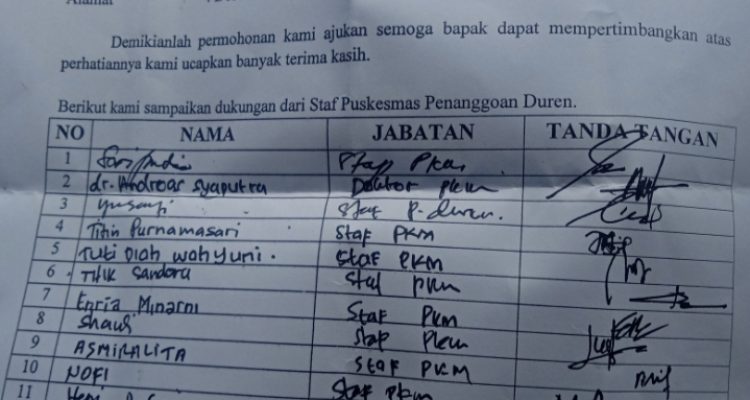 Alamat
Demikianlah permohonan kami ajukan semoga bapak dapat mempertimbangkan atas
perhatiannya kami ucapkan banyak terima kasih.
Berikut kami sampaikan dukungan dari Staf Puskesmas Penanggoan Duren.
NO NAMA JABATAN TANDA TANGAN
1 Staf Pkm
2 dr. Andreas Syaputra Doktor pkm
3 Yusanti Staf P. duren.
4 Titin Purnamasari Staf PKM
5 Tuti Diah Wahyuni. Staf PKM
6 Titik Sandora Staf pkm
7 Enria Minarni Staf PKM
8 Staf Pkm
9 ASMIRALITA Staf PKM
10 NOFI Staf pkm
11